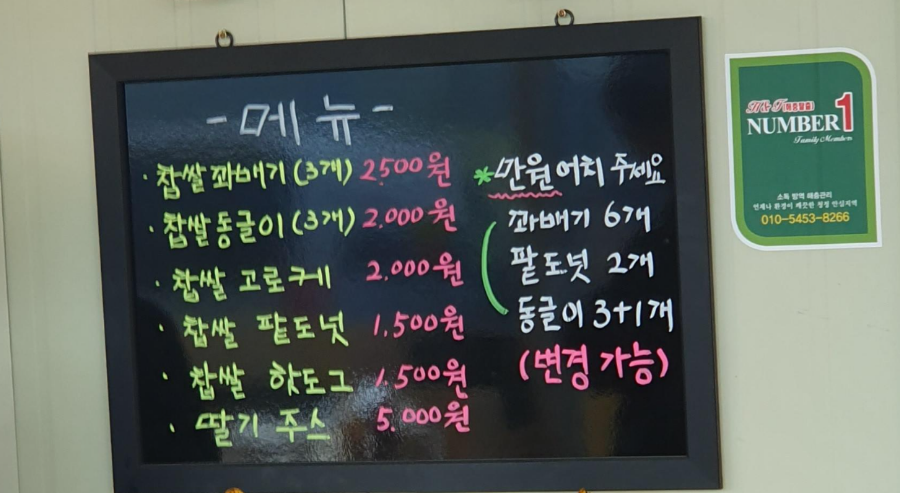 -메뉴-
· 찹쌀꽈배기(3개) 2500원
· 찹쌀동글이(3개) 2.000원
· 찹쌀 고로케 2.000원
· 찹쌀 팥도넛 1.500원
· 찹쌀 핫도그 1.500원
· 딸기 주스 5.000원
*만원어치 주세요
꽈배기 6개
팥도넛 2개
동글이 3+1개
(변경 가능)
NUMBER 1
Family Members
소독 방역 해충관리
010-5453-8266